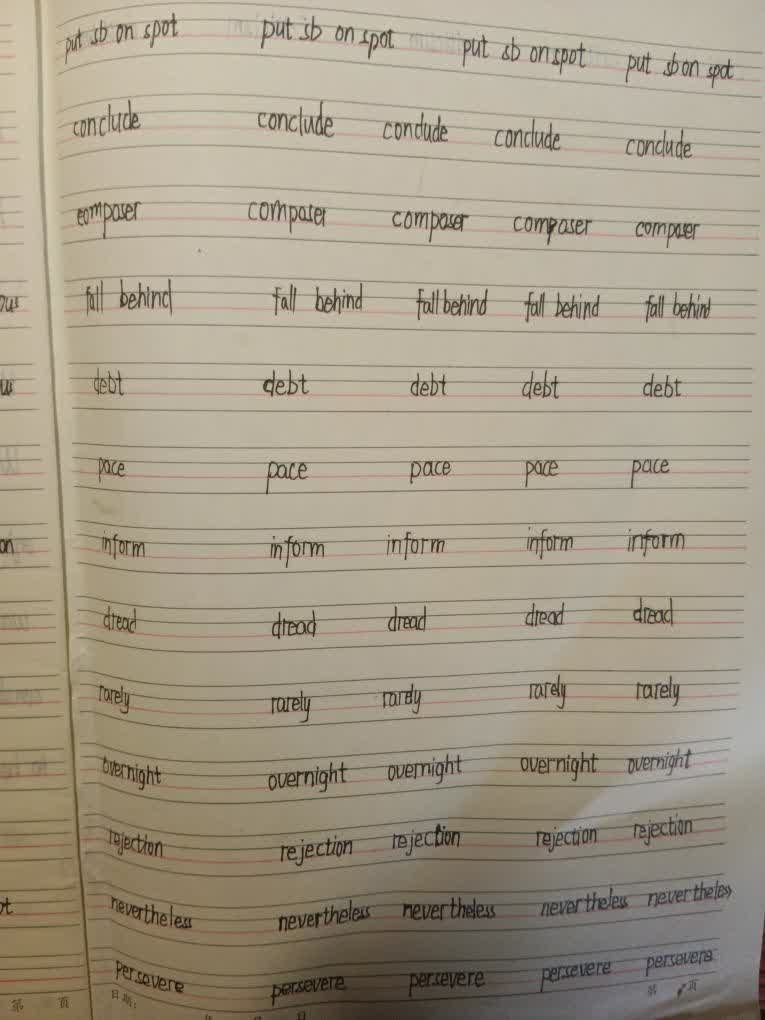 put sb on spot put sb on spot put sb on spot put sb on spot
conclude conclude conclude conclude conclude
composer composer composer composer composer
fall behind fall behind fall behind fall behind fall behind
debt debt debt debt debt
pace pace pace pace pace
inform inform inform inform inform
dread dread dread dread dread
rarely rarely rarely rarely rarely
overnight overnight overnight overnight overnight
rejection rejection rejection rejection rejection
nevertheless nevertheless nevertheless nevertheless nevertheless
persevere persevere persevere persevere persevere
第 页 日期: 第 页